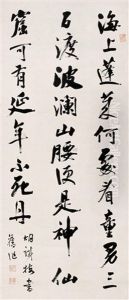 海上蓬萊何處看童男三
百渡波瀾山腰便是神仙
窟可有延年不死丹